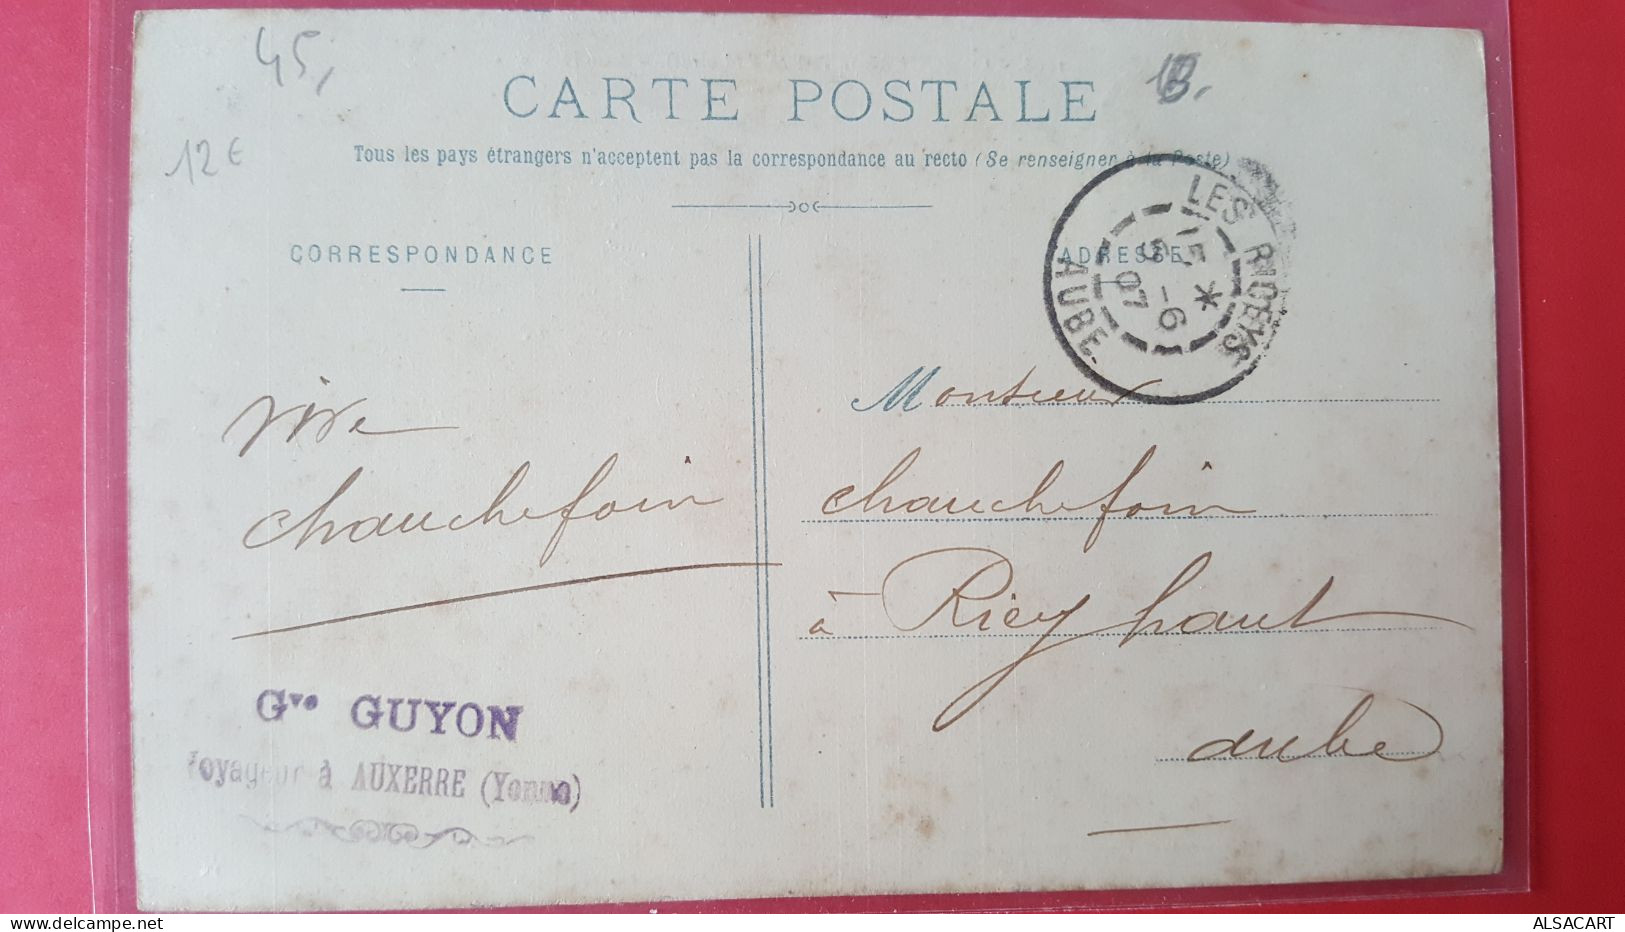 45,
12 €
CARTE POSTALE
Tous les pays étrangers n'acceptent pas la correspondance au recto (Se renseigner à la Poste)
CORRESPONDANCE
ADRESSE
LES RICEYS
5 * 
5 -6
07
AUBE
vive
chauchefoin
Monsieur
chauchefoin
à Ricey haut
aube
Gve GUYON
Voyageur à AUXERRE (Yonne)
www.delcampe.net
ALSACART